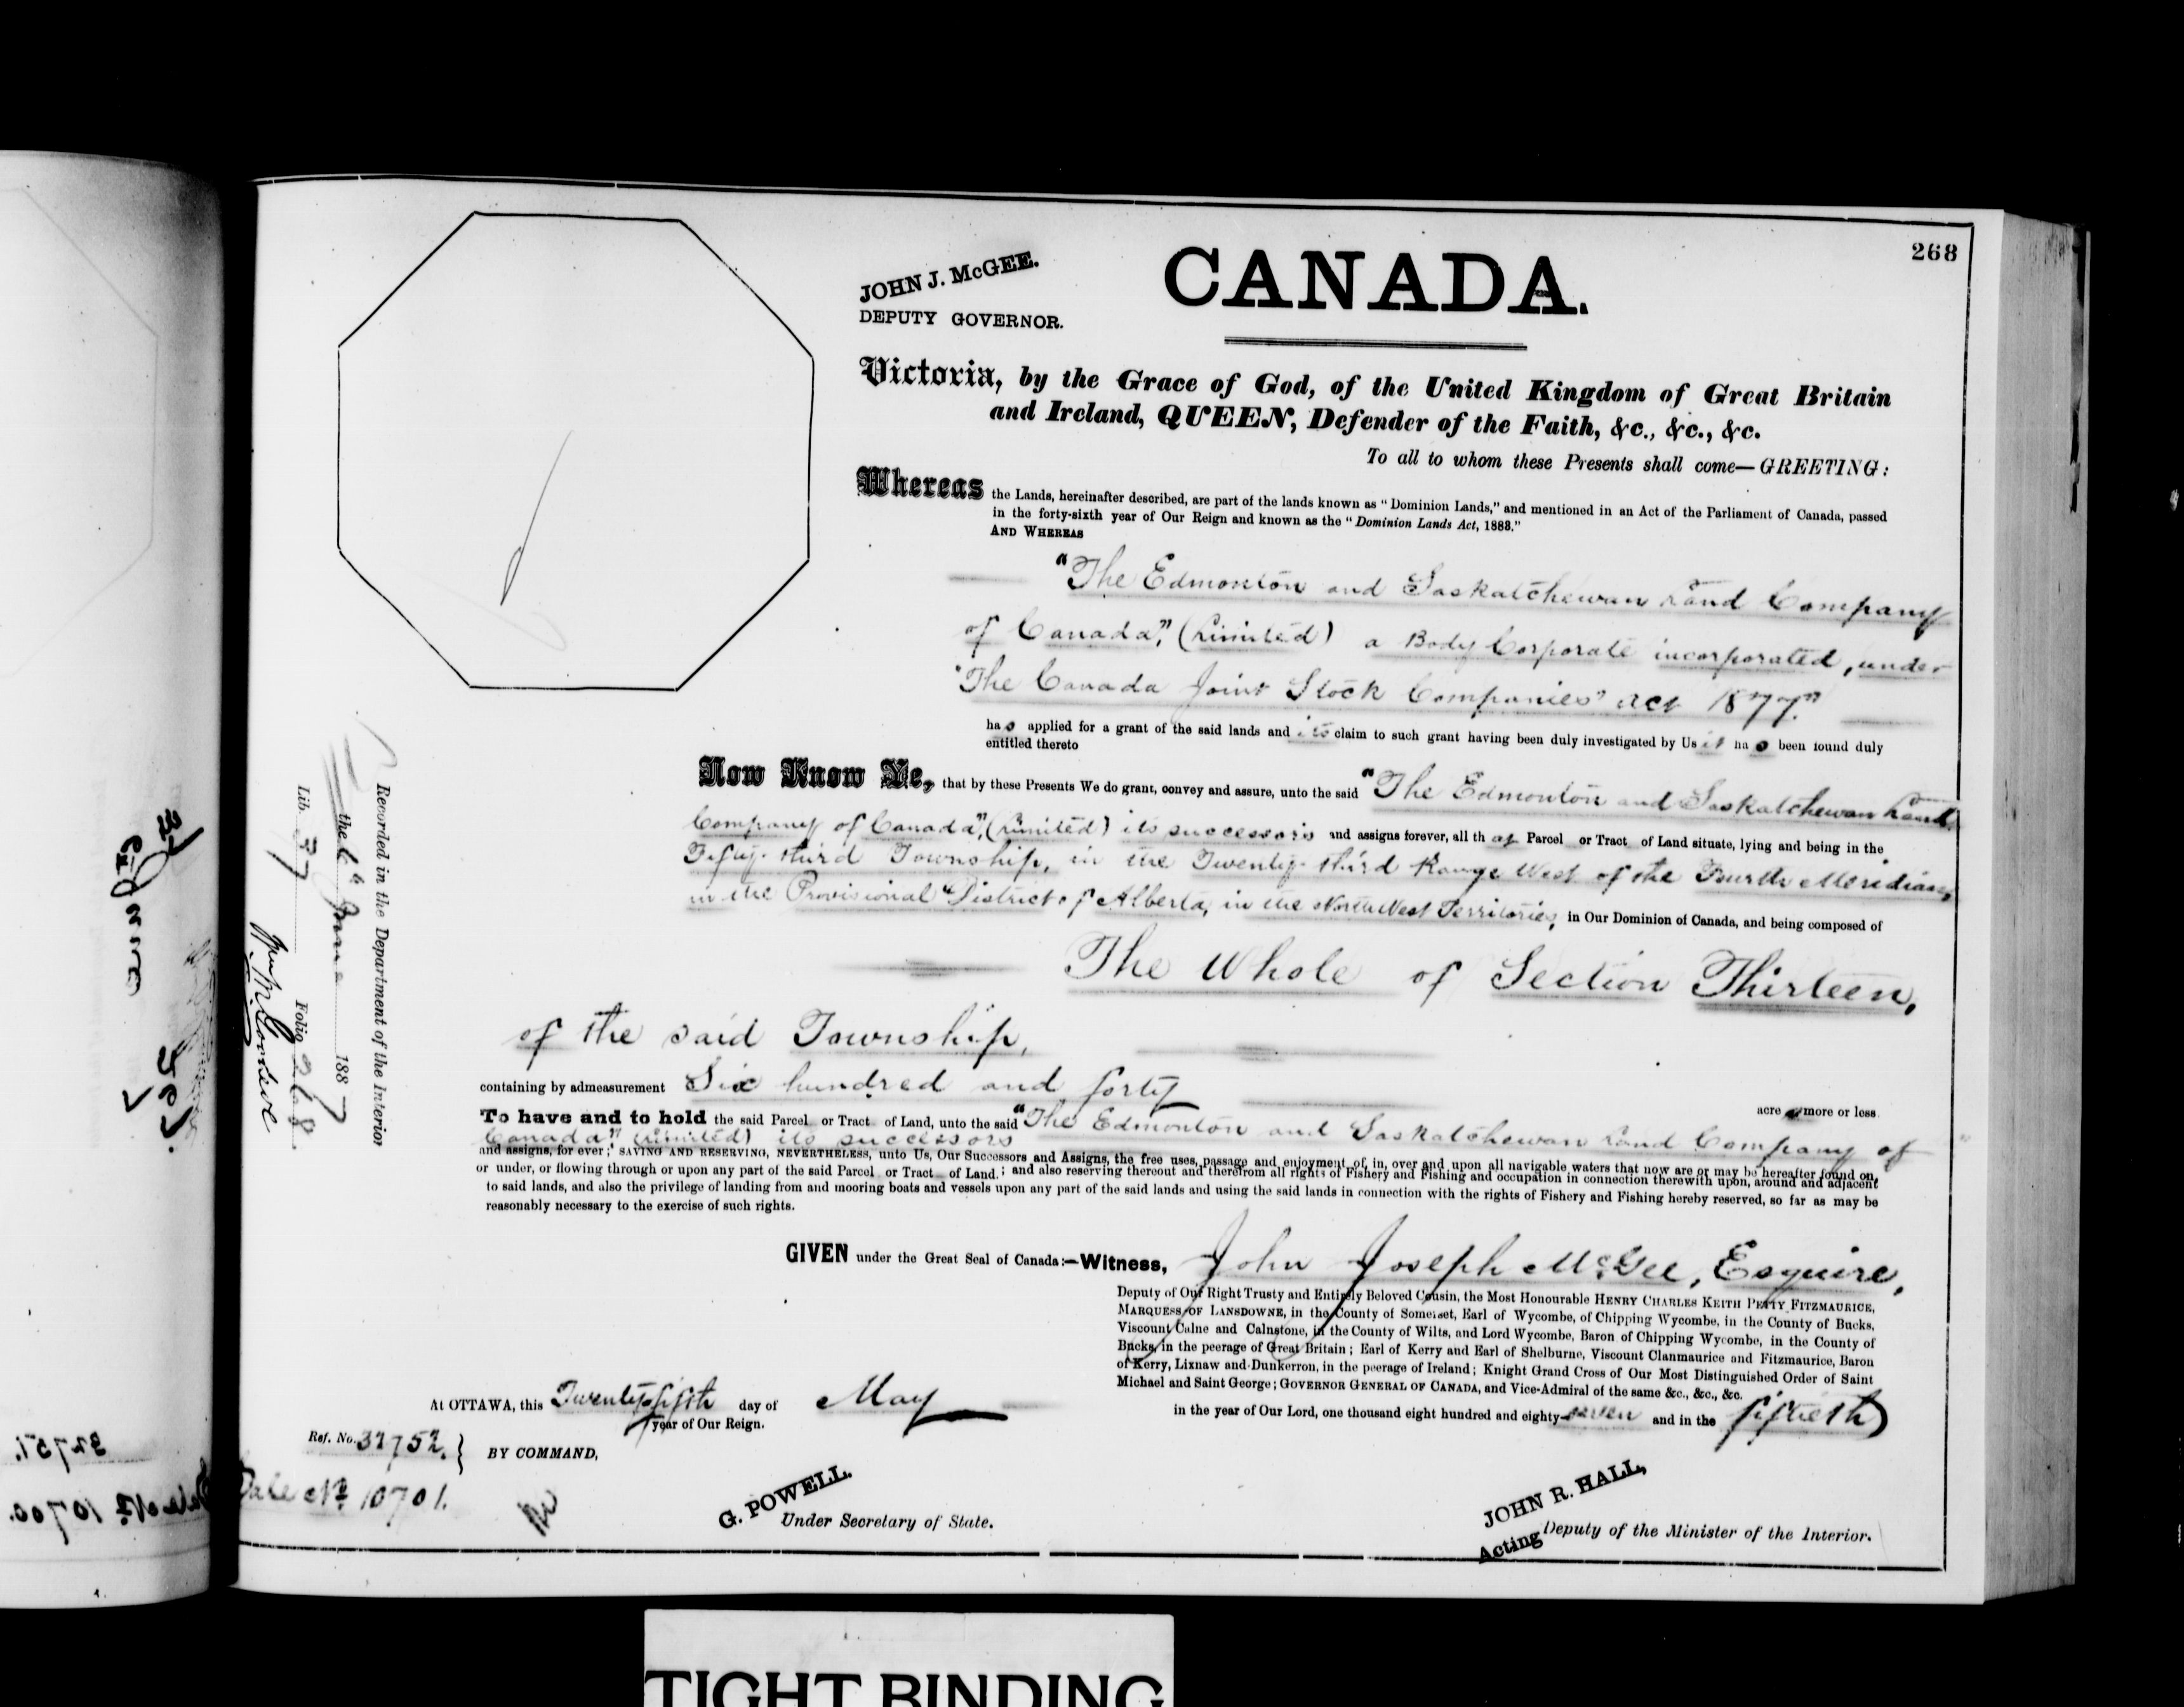 268
JOHN J. McGEE.
DEPUTY GOVERNOR.
CANADA.
Victoria, by the Grace of God, of the United Kingdom of Great Britain
and Ireland, QUEEN, Defender of the Faith, &c., &c., &c.
To all to whom these Presents shall come—GREETING:
Whereas the Lands, hereinafter described, are part of the lands known as "Dominion Lands," and mentioned in an Act of the Parliament of Canada, passed
in the forty-sixth year of Our Reign and known as the "Dominion Lands Act, 1883."
AND WHEREAS
"The Edmonton and Saskatchewan Land Company
of Canada", (Limited) a Body Corporate incorporated, under
"The Canada Joint Stock Companies' Act 1877"
has applied for a grant of the said lands and its claim to such grant having been duly investigated by Us it has been found duly
entitled thereto
Now Know Ye, that by these Presents We do grant, convey and assure, unto the said "The Edmonton and Saskatchewan Land
Company of Canada", (Limited) its successors and assigns forever, all that Parcel or Tract of Land situate, lying and being in the
Fifty-third Township, in the Twenty-third Range West of the Fourth Meridian,
in the Provisional District of Alberta, in the North West Territories, in Our Dominion of Canada, and being composed of
The Whole of Section Thirteen,
of the said Township,
containing by admeasurement Six hundred and forty
acres more or less.
To have and to hold the said Parcel or Tract of Land, unto the said "The Edmonton and Saskatchewan Land Company of
Canada" (Limited) its successors
and assigns, for ever; SAVING AND RESERVING, NEVERTHELESS, unto Us, Our Successors and Assigns, the free uses, passage and enjoyment of, in, over and upon all navigable waters that now are or may be hereafter found on,
or under, or flowing through or upon any part of the said Parcel or Tract of Land.; and also reserving thereout and therefrom all rights of Fishery and Fishing and occupation in connection therewith upon, around and adjacent
to said lands, and also the privilege of landing from and mooring boats and vessels upon any part of the said lands and using the said lands in connection with the rights of Fishery and Fishing hereby reserved, so far as may be
reasonably necessary to the exercise of such rights.
GIVEN under the Great Seal of Canada:—Witness, John Joseph McGee, Esquire,
Deputy of Our Right Trusty and Entirely Beloved Cousin, the Most Honourable HENRY CHARLES KEITH PETTY FITZMAURICE,
MARQUESS OF LANSDOWNE, in the County of Somerset, Earl of Wycombe, of Chipping Wycombe, in the County of Bucks,
Viscount Calne and Calnstone, in the County of Wilts, and Lord Wycombe, Baron of Chipping Wycombe, in the County of
Bucks, in the peerage of Great Britain; Earl of Kerry and Earl of Shelburne, Viscount Clanmaurice and Fitzmaurice, Baron
of Kerry, Lixnaw and Dunkerron, in the peerage of Ireland; Knight Grand Cross of Our Most Distinguished Order of Saint
Michael and Saint George; GOVERNOR GENERAL OF CANADA, and Vice-Admiral of the same &c., &c., &c.
At OTTAWA, this Twenty-fifth day of May in the year of Our Lord, one thousand eight hundred and eighty-seven and in the fiftieth
year of Our Reign.
Ref. No. 32752.
BY COMMAND,
Sale No. 10701.
G. POWELL.
Under Secretary of State.
JOHN R. HALL,
Acting Deputy of the Minister of the Interior.
Recorded in the Department of the Interior
the 6th June 1887
Lib. 37 Folio 268.
32751.
Sale No. 10700.
TIGHT BINDING